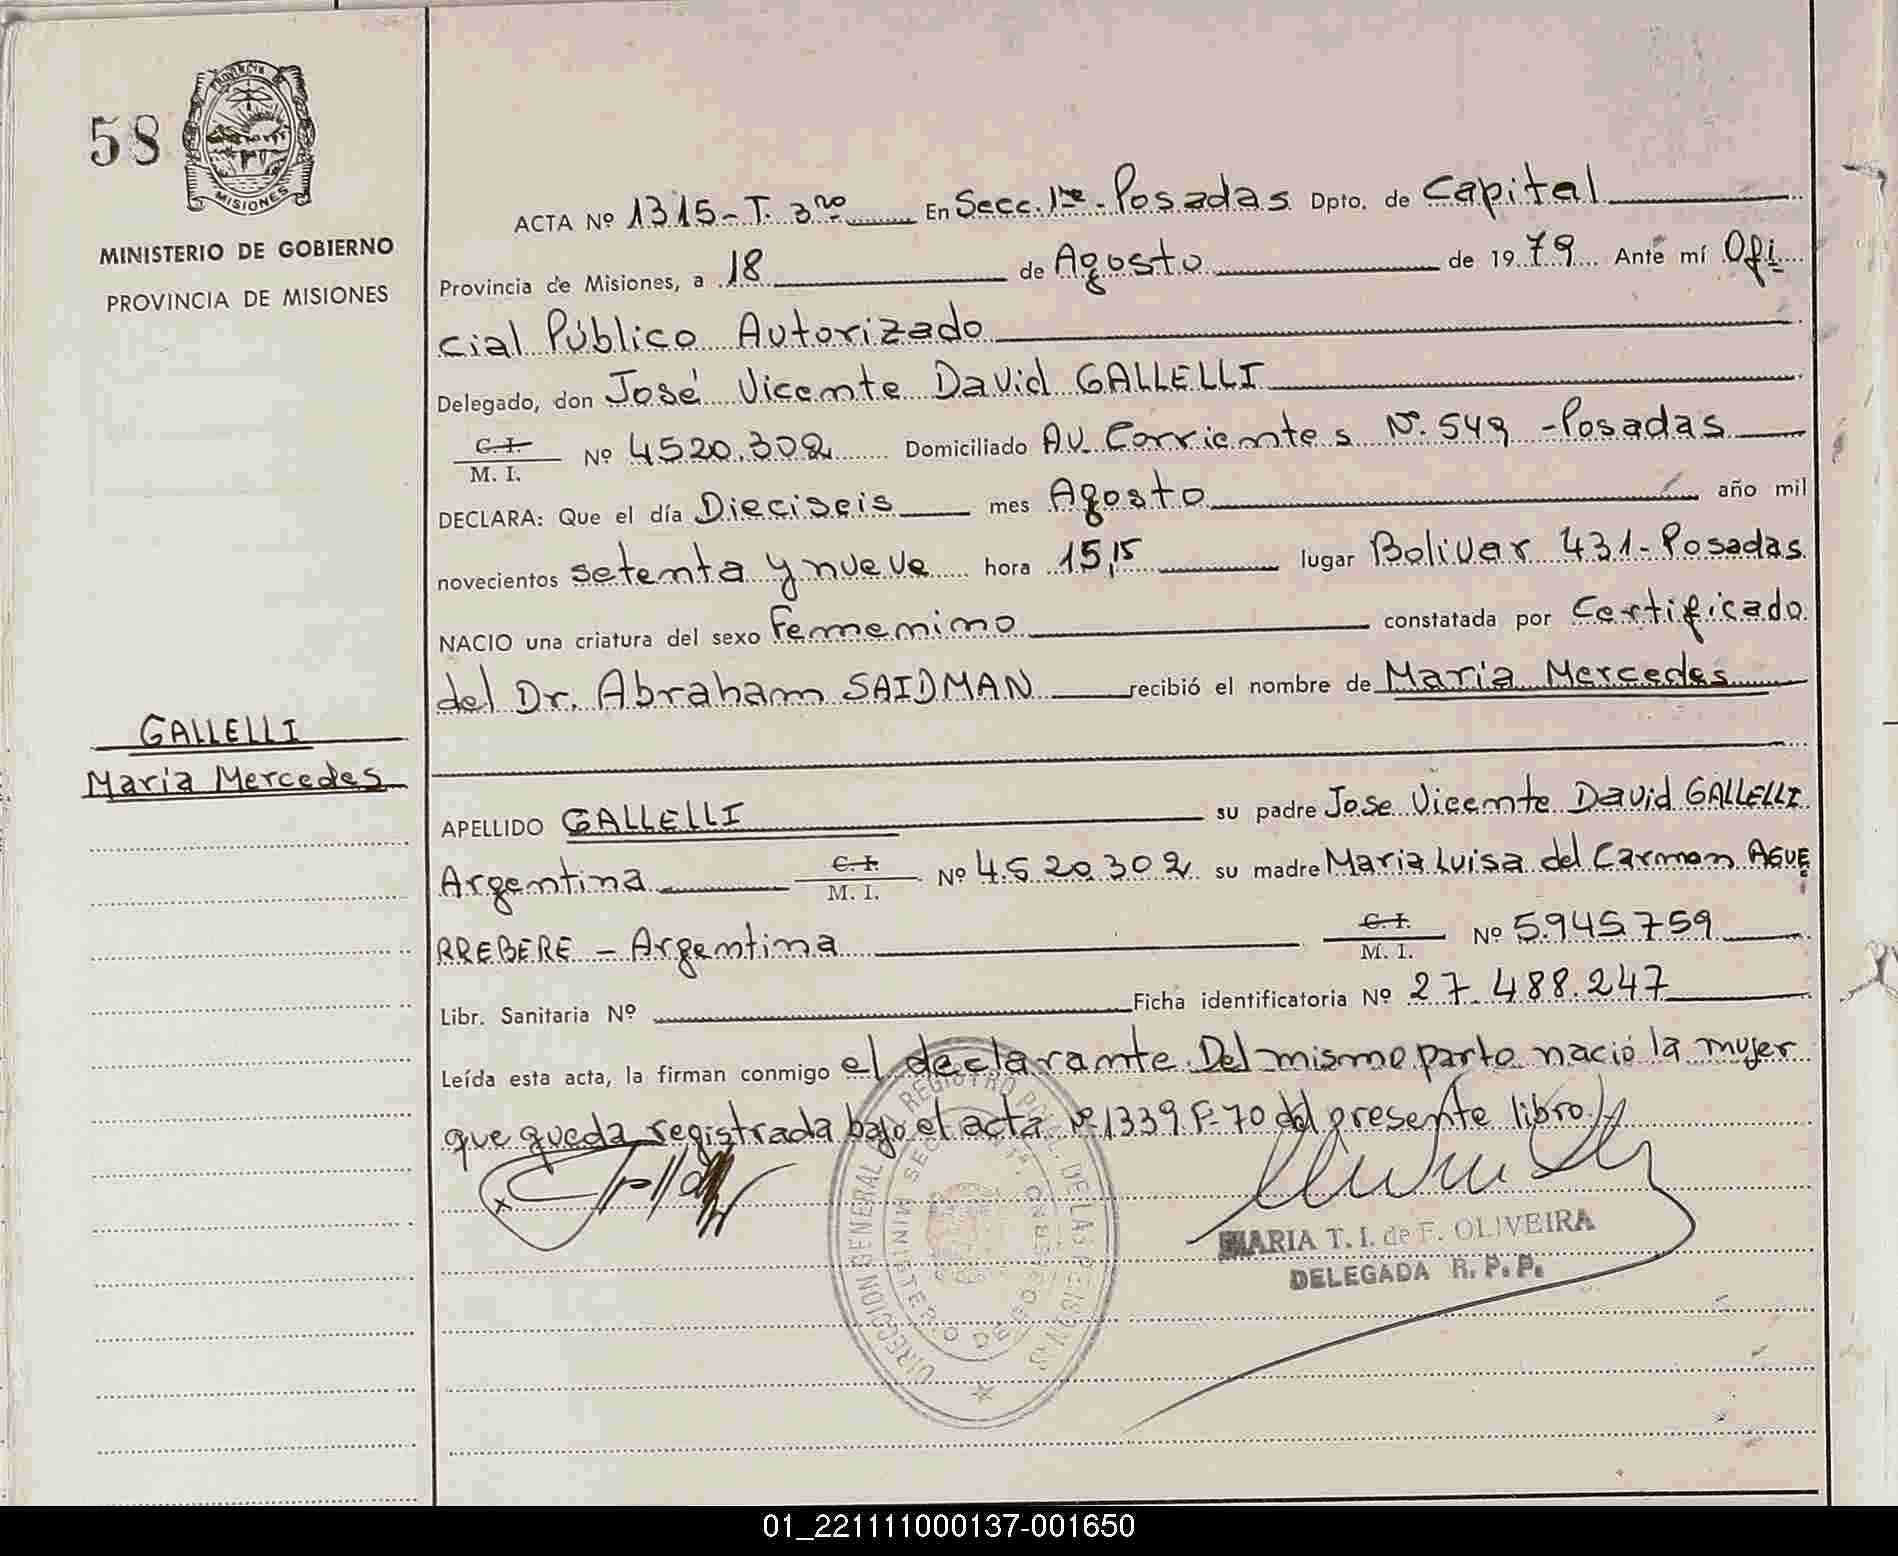 58
PROVINCIA
MISIONES
MINISTERIO DE GOBIERNO
PROVINCIA DE MISIONES
GALLELLI
Maria Mercedes
ACTA Nº 1315-T. 3ro En Secc. 1ra - Posadas Dpto. de Capital
Provincia de Misiones, a 18 de Agosto de 1979 Ante mí Ofi
cial Público Autorizado
Delegado, don José Vicente David GALLELLI
C. I.
M. I. Nº 4520.302 Domiciliado Av. Corrientes Nº. 549 - Posadas
DECLARA: Que el día Dieciseis mes Agosto año mil
novecientos setenta y nueve hora 15,15 lugar Bolivar 431 - Posadas
NACIO una criatura del sexo Femenino constatada por Certificado
del Dr. Abraham SAIDMAN recibió el nombre de Maria Mercedes
APELLIDO GALLELLI su padre Jose Vicente David GALLELLI
Argentina C. I. M. I. Nº 4.520.302 su madre Maria Luisa del Carmen AGUE
RREBERE - Argentina C. I. M. I. Nº 5.945.759
Libr. Sanitaria Nº Ficha identificatoria Nº 27.488.247
Leída esta acta, la firman conmigo el declarante. Del mismo parto nació la mujer
que queda registrada bajo el acta Nº 1339 F-70 del presente libro.
DIRECCION GENERAL REGISTRO PCIAL. DE LAS PERSONAS
MINISTERIO DE GOBIERNO
MARIA T. I. de F. OLIVEIRA
DELEGADA R. P. P.
01_221111000137-001650